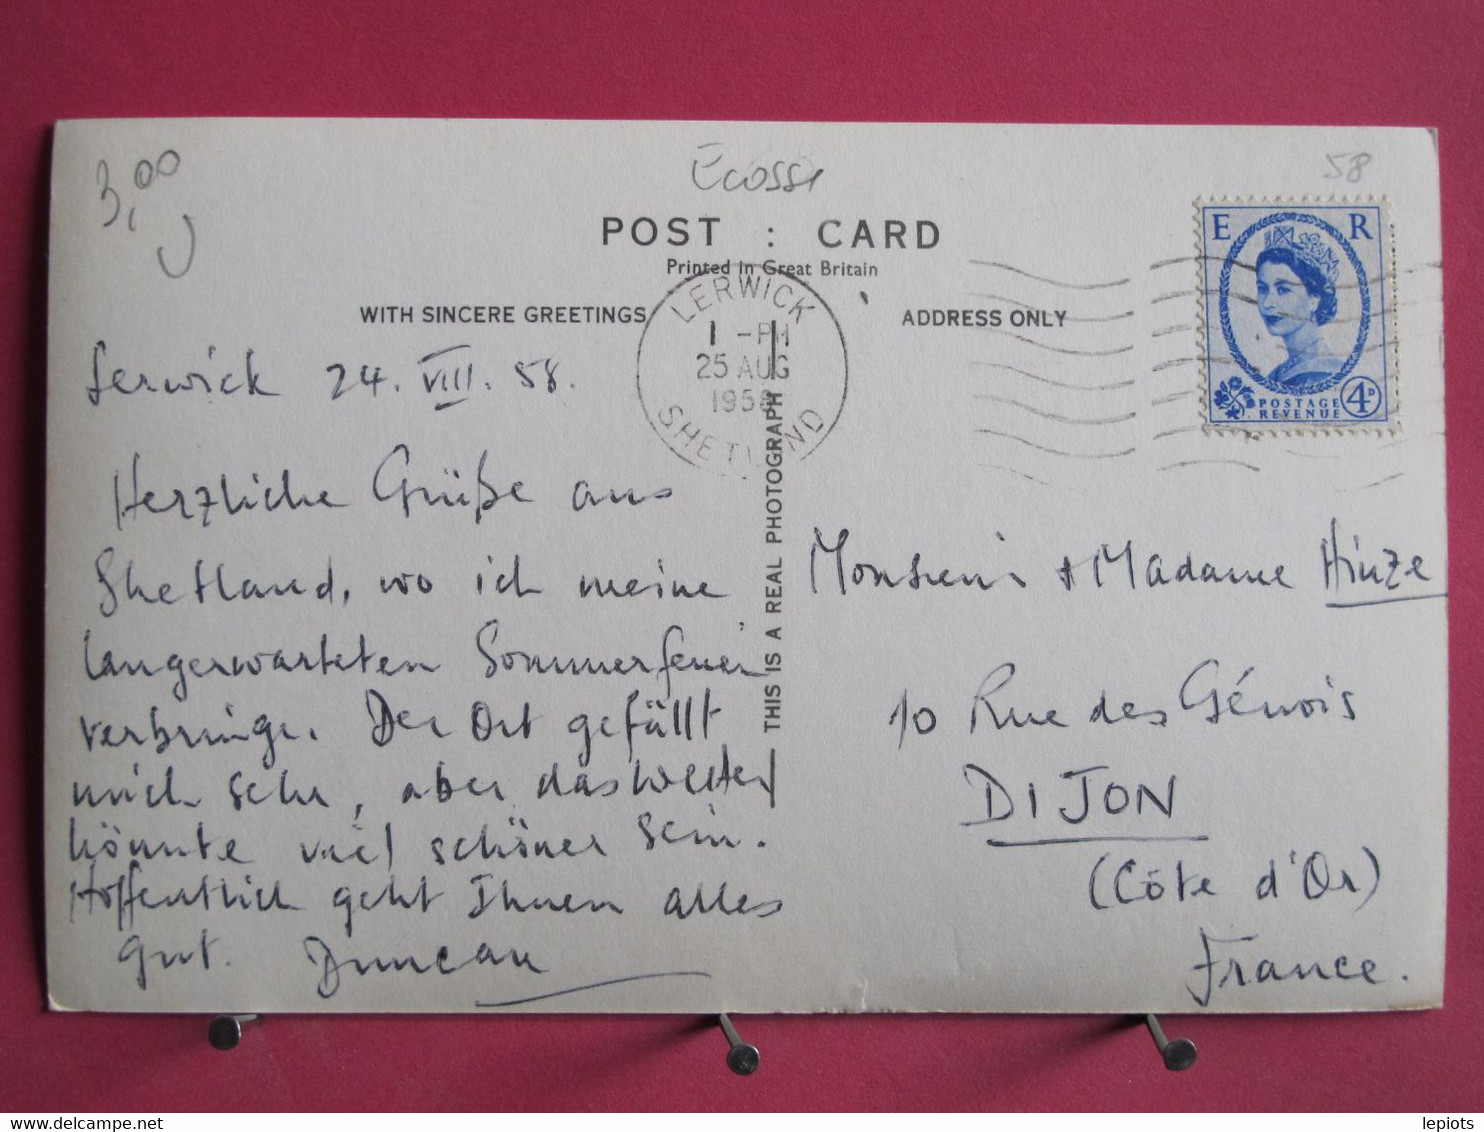 3,00
Ecosse
58
POST : CARD
Printed in Great Britain
WITH SINCERE GREETINGS
ADDRESS ONLY
LERWICK
1 - PM
25 AUG
1958
SHETLAND
E R
POSTAGE
REVENUE
4D
THIS IS A REAL PHOTOGRAPH
Lerwick 24. VIII. 58.
Herzliche Grüße aus
Shetland, wo ich meine
langerwarteten Sommerferien
verbringe. Der Ort gefällt
mich sehr, aber das Wetter
könnte viel schöner sein.
Hoffentlich geht Ihnen alles
gut. Duncan
Monsieur + Madame Hinze
10 Rue des Génois
DIJON
(Côte d'Or)
France.
delcampe.net
lepiots